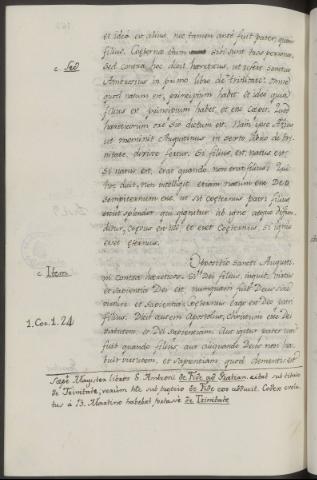 et ideo est alius, nec tamen ante fuit pater, quam
filius. Coeternæ enim sibi sunt tres personæ.
c. Sed
sed contra hoc dicit hæreticus, ut refert sanctus
Ambrosius in primo libro de trinitate: Omne
quod natum est, principium habet, et ideo quia
filius est principium habet, et esse cœpit. Quod
hæreticorum ore sic dictum est. Nam ipse Arius
ut meminit Augustinus in sexto libro de tri-
nitate, dixisse fertur. Si filius est, natus est:
si natus est, erat quando non erat filius. Qui
hoc dicit, non intelligit etiam natum esse Deo
sempiternum esse, ut sit coeternus patri filius
sicut splendor qui gignitur ab igne atque diffun-
ditur, coævus est illi, et esset coeternus, si ignis
esset æternus.
c. Item
Oppositio sancti Augusti-
ni contra hæreticos. Si Dei filius, inquit, virtus
et sapientia Dei est, nec numquam fuit Deus sine
virtute et sapientia; coeternus ergo est Deo patri
1. Cor. 1. 24
filius. Dicit autem Apostolus, Christum esse Dei
virtutem, et Dei sapientiam. Aut igitur pater non
fuit quando filius, aut aliquando Deus non ha-
buit virtutem, et sapientiam, quod dementis est
Sæpe Magister libros S. Ambrosii de Fide ad Gratian. citat sub titulo
de Trinitate, verum hic sub proprio de Fide eos adducit. Codex
tus à B. Martino habebat fortasse de Trinitate